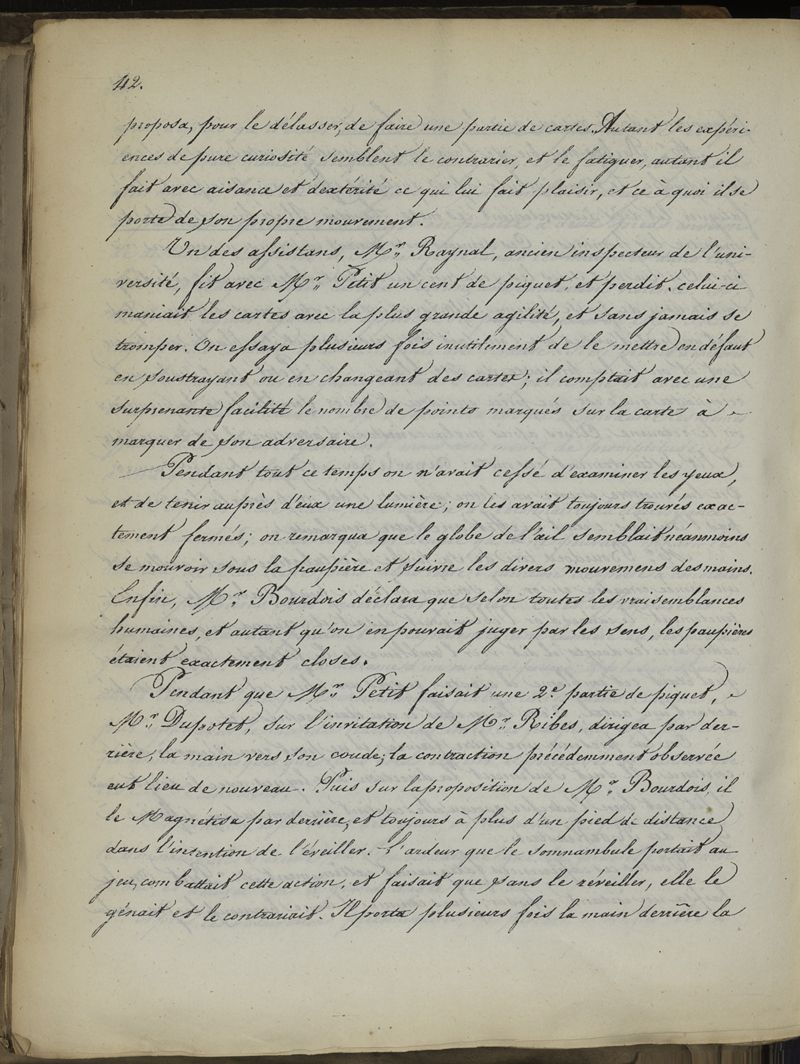 42.
proposa, pour le délasser, de faire une partie de cartes. Autant les expéri-
ences de pure curiosité semblent le contrarier, et le fatiguer, autant il
fait avec aisance et dextérité ce qui lui fait plaisir, et ce à quoi il se
porte de son propre mouvement.
Un des assistans, Mr. Raynal, ancien inspecteur de l'uni-
versité, fit avec Mr. Petit un cent de piquet, et perdit. celui-ci
maniait les cartes avec la plus grande agilité, et sans jamais se
tromper. On essaya plusieurs fois inutilement de le mettre en défaut
en soustrayant ou en changeant des cartes; il comptait avec une
surprenante facilité le nombre de points marqués sur la carte à
marquer de son adversaire.
Pendant tout ce temps on n'avait cessé d'examiner les yeux,
et de tenir auprès d'eux une lumière; on les avait toujours trouvés exac-
tement fermés; on remarqua que le globe de l'œil semblait néanmoins
se mouvoir sous la paupière et suivre les divers mouvemens des mains.
Enfin, Mr. Bourdois déclara que selon toutes les vraisemblances
humaines, et autant qu'on en pouvait juger par les sens, les paupières
étaient exactement closes.
Pendant que Mr. Petit faisait une 2e. partie de piquet,
Mr. Dupotet, sur l'invitation de Mr. Ribes, dirigea par der-
rière, la main vers son coude; la contraction précédemment observée
eut lieu de nouveau. Puis sur la proposition de Mr. Bourdois, il
le Magnétisa par derrière, et toujours à plus d'un pied de distance
dans l'intention de l'éveiller. L'ardeur que le somnambule portait au
jeu, combattait cette action, et faisait que sans le réveiller, elle le
gênait et le contrariait. Il porta plusieurs fois la main derrière la